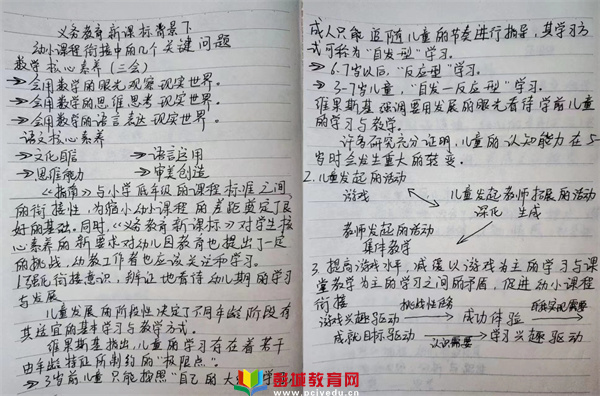 义务教育新课标背景下
幼小课程衔接中的几个关键问题
数学核心素养（三会）
→会用数学的眼光观察现实世界。
→会用数学的思维思考现实世界。
→会用数学的语言表达现实世界。
语文核心素养
→文化自信 →语言运用
→思维能力 →审美创造
《指南》与小学低年级的课程标准之间
的衔接性，为缩小幼小课程的差距奠定了良
好的基础。同时，《义务教育新课标》对学生核
心素养的新要求对幼儿园教育也提出了一定
的挑战，幼教工作者也应该关注和学习。
1.强化衔接意识，辩证地看待幼儿期的学习
与发展
儿童发展的阶段性决定了不同年龄阶段有
其适宜的基本学习与教学方式。
维果斯基指出，儿童的学习存在着若干
由年龄特征所制约的“极限点”。
→3岁前儿童只能按照“自己的大
成人只能追随儿童的节奏进行指导，其学习方
式可称为“自发型”学习。
→6-7岁以后，“反应型”学习。
→3-7岁儿童，“自发—反应型”学习。
维果斯基强调要用发展的眼光看待学前儿童
的学习与教学。
许多研究充分证明，儿童的认知能力在5
岁时会发生重大的转变。
2.儿童发起的活动
游戏 儿童发起教师拓展的活动
深化 生成
教师发起的活动
集体教学
3.提高游戏水平，减缓以游戏为主的学习与课
堂教学为主的学习之间的矛盾，促进幼小课程
衔接
挑战性任务
游戏兴趣驱动 → 成功体验
成就目标驱动 → 学习兴趣驱动
认识需要
郸城教育网
www.pcjyedu.cn